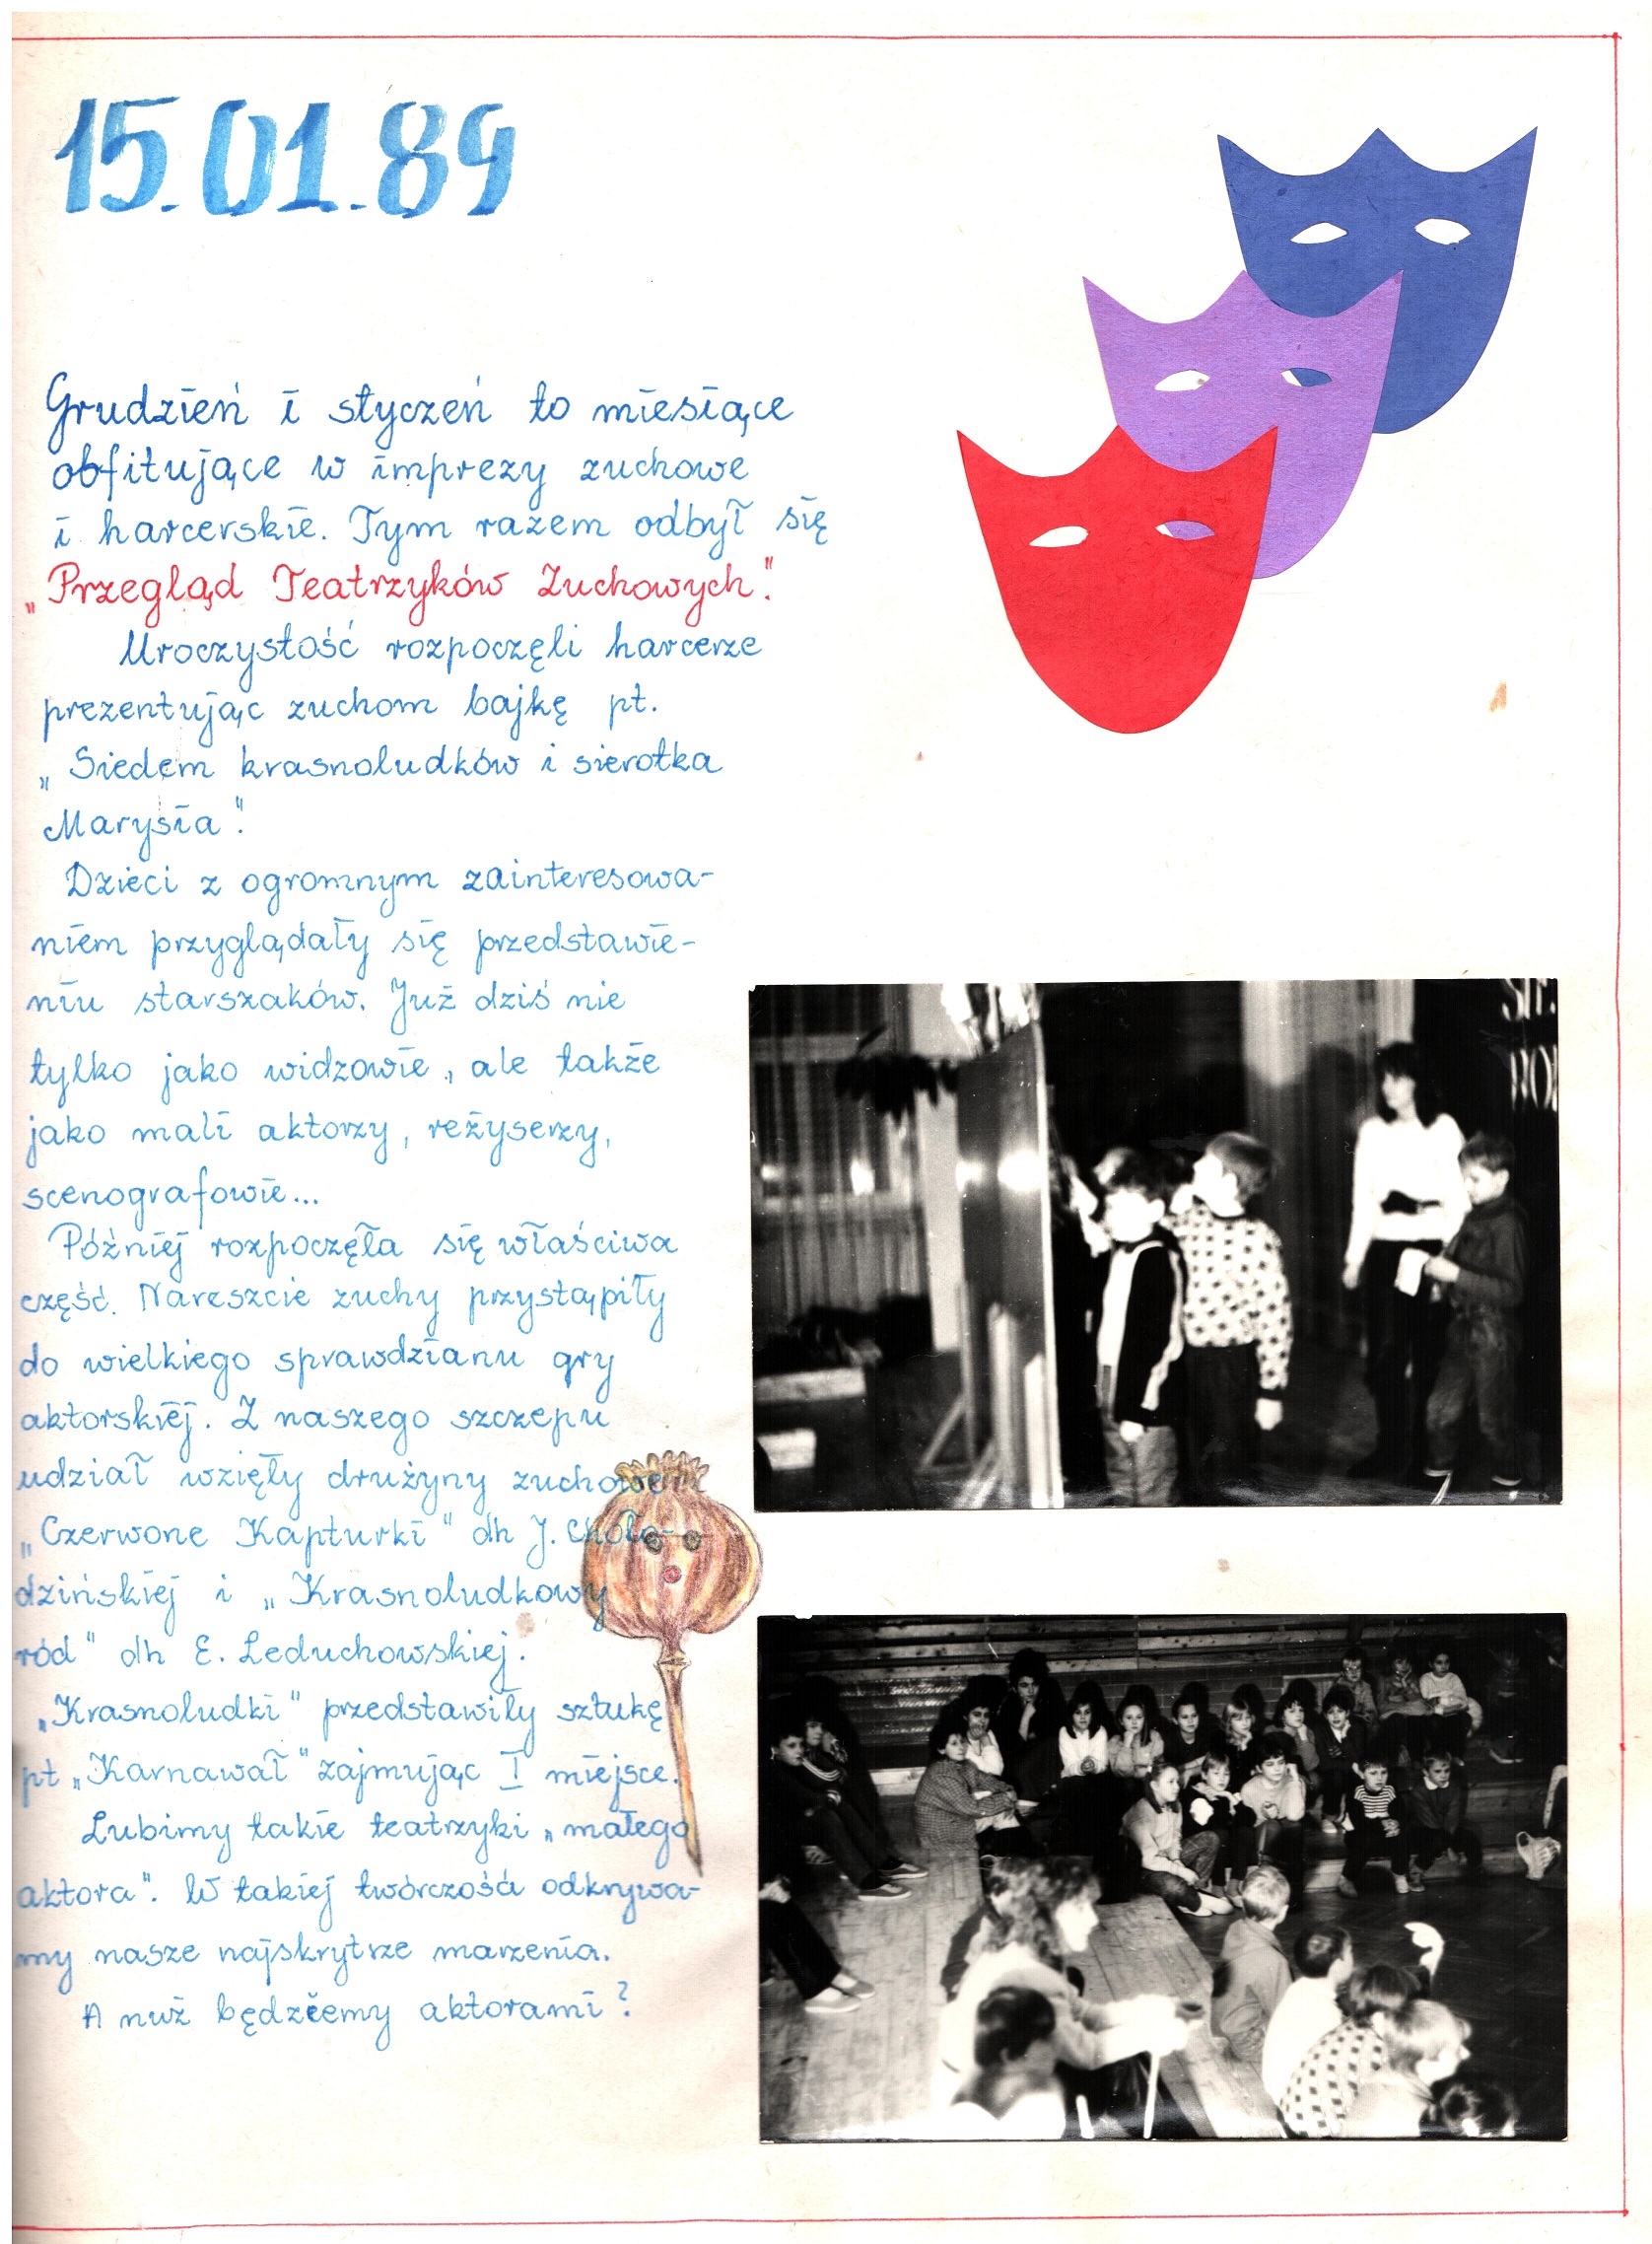 15.01.89
Grudzień i styczeń to miesiące
obfitujące w imprezy zuchowe
i harcerskie. Tym razem odbył się
„Przegląd Teatrzyków Zuchowych".
Uroczystość rozpoczęli harcerze
prezentując zuchom bajkę pt.
„Siedem krasnoludków i sierotka
Marysia".
Dzieci z ogromnym zainteresowa-
niem przyglądały się przedstawie-
niu starszaków. Już dziś nie
tylko jako widzowie, ale także
jako mali aktorzy, reżyserzy,
scenografowie...
Później rozpoczęła się właściwa
część. Nareszcie zuchy przystąpiły
do wielkiego sprawdzianu gry
aktorskiej. Z naszego szczepu
udział wzięły drużyny zuchowe
„Czerwone Kapturki" dh J. Choło-
dzińskiej i „Krasnoludkowy
ród" dh E. Leduchowskiej.
„Krasnoludki" przedstawiły sztukę
pt „Karnawał" zajmując I miejsce.
Lubimy takie teatrzyki „małego
aktora". W takiej twórczości odkrywa-
my nasze najskrytrze marzenia.
A nuż będziemy aktorami?